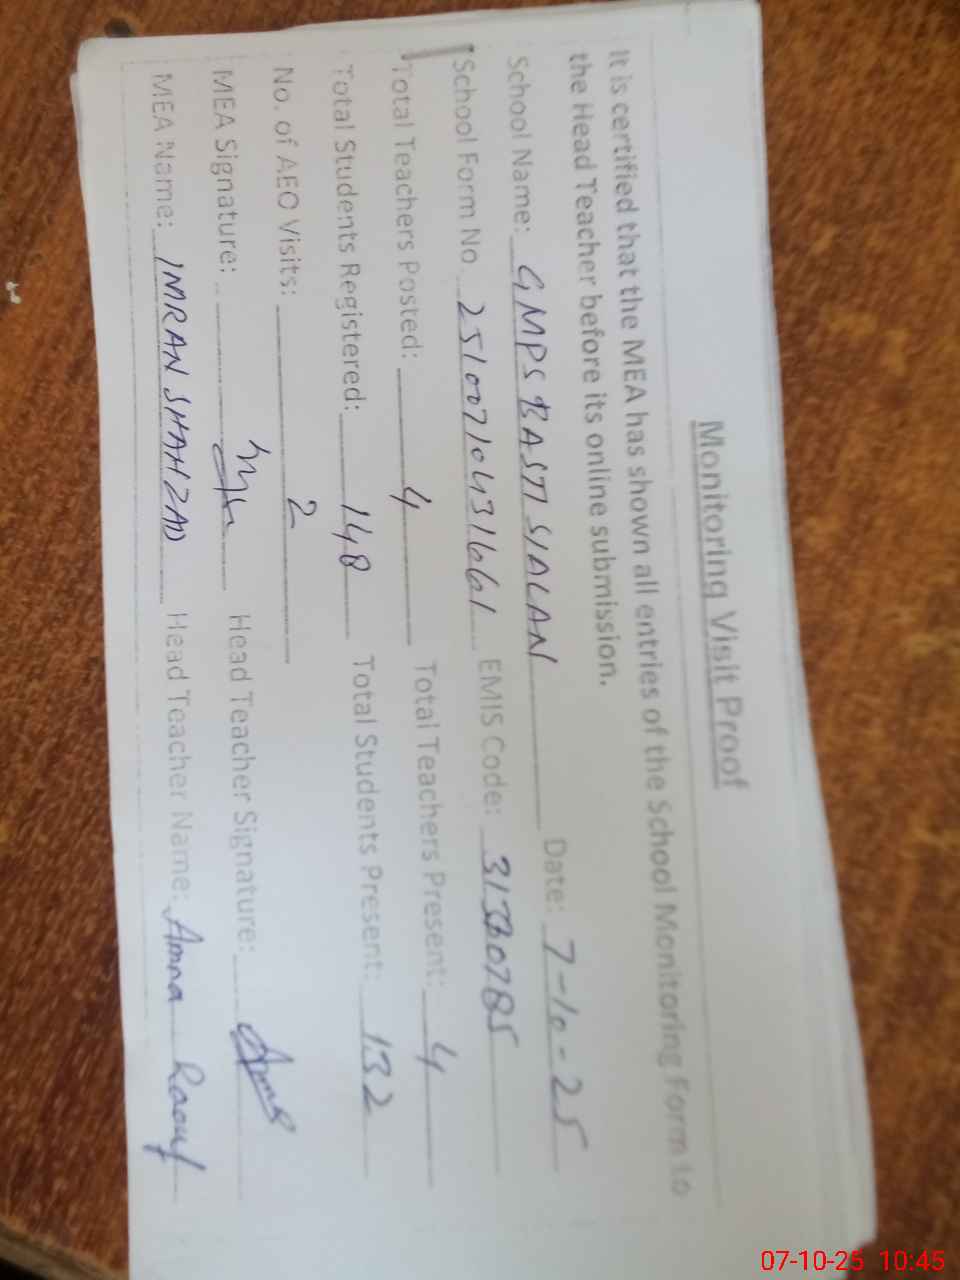 Monitoring Visit Proof
It is certified that the MEA has shown all entries of the School Monitoring Form to
the Head Teacher before its online submission.
School Name: GMPS BASTI SIALAN Date: 7-10-25
School Form No. 25100710431661 EMIS Code: 31330785
Total Teachers Posted: 4 Total Teachers Present: 4
Total Students Registered: 148 Total Students Present: 132
No. of AEO Visits: 2
MEA Signature: Head Teacher Signature:
MEA Name: IMRAN SHAHZAD Head Teacher Name: Amna Raouf
07-10-25 10:45